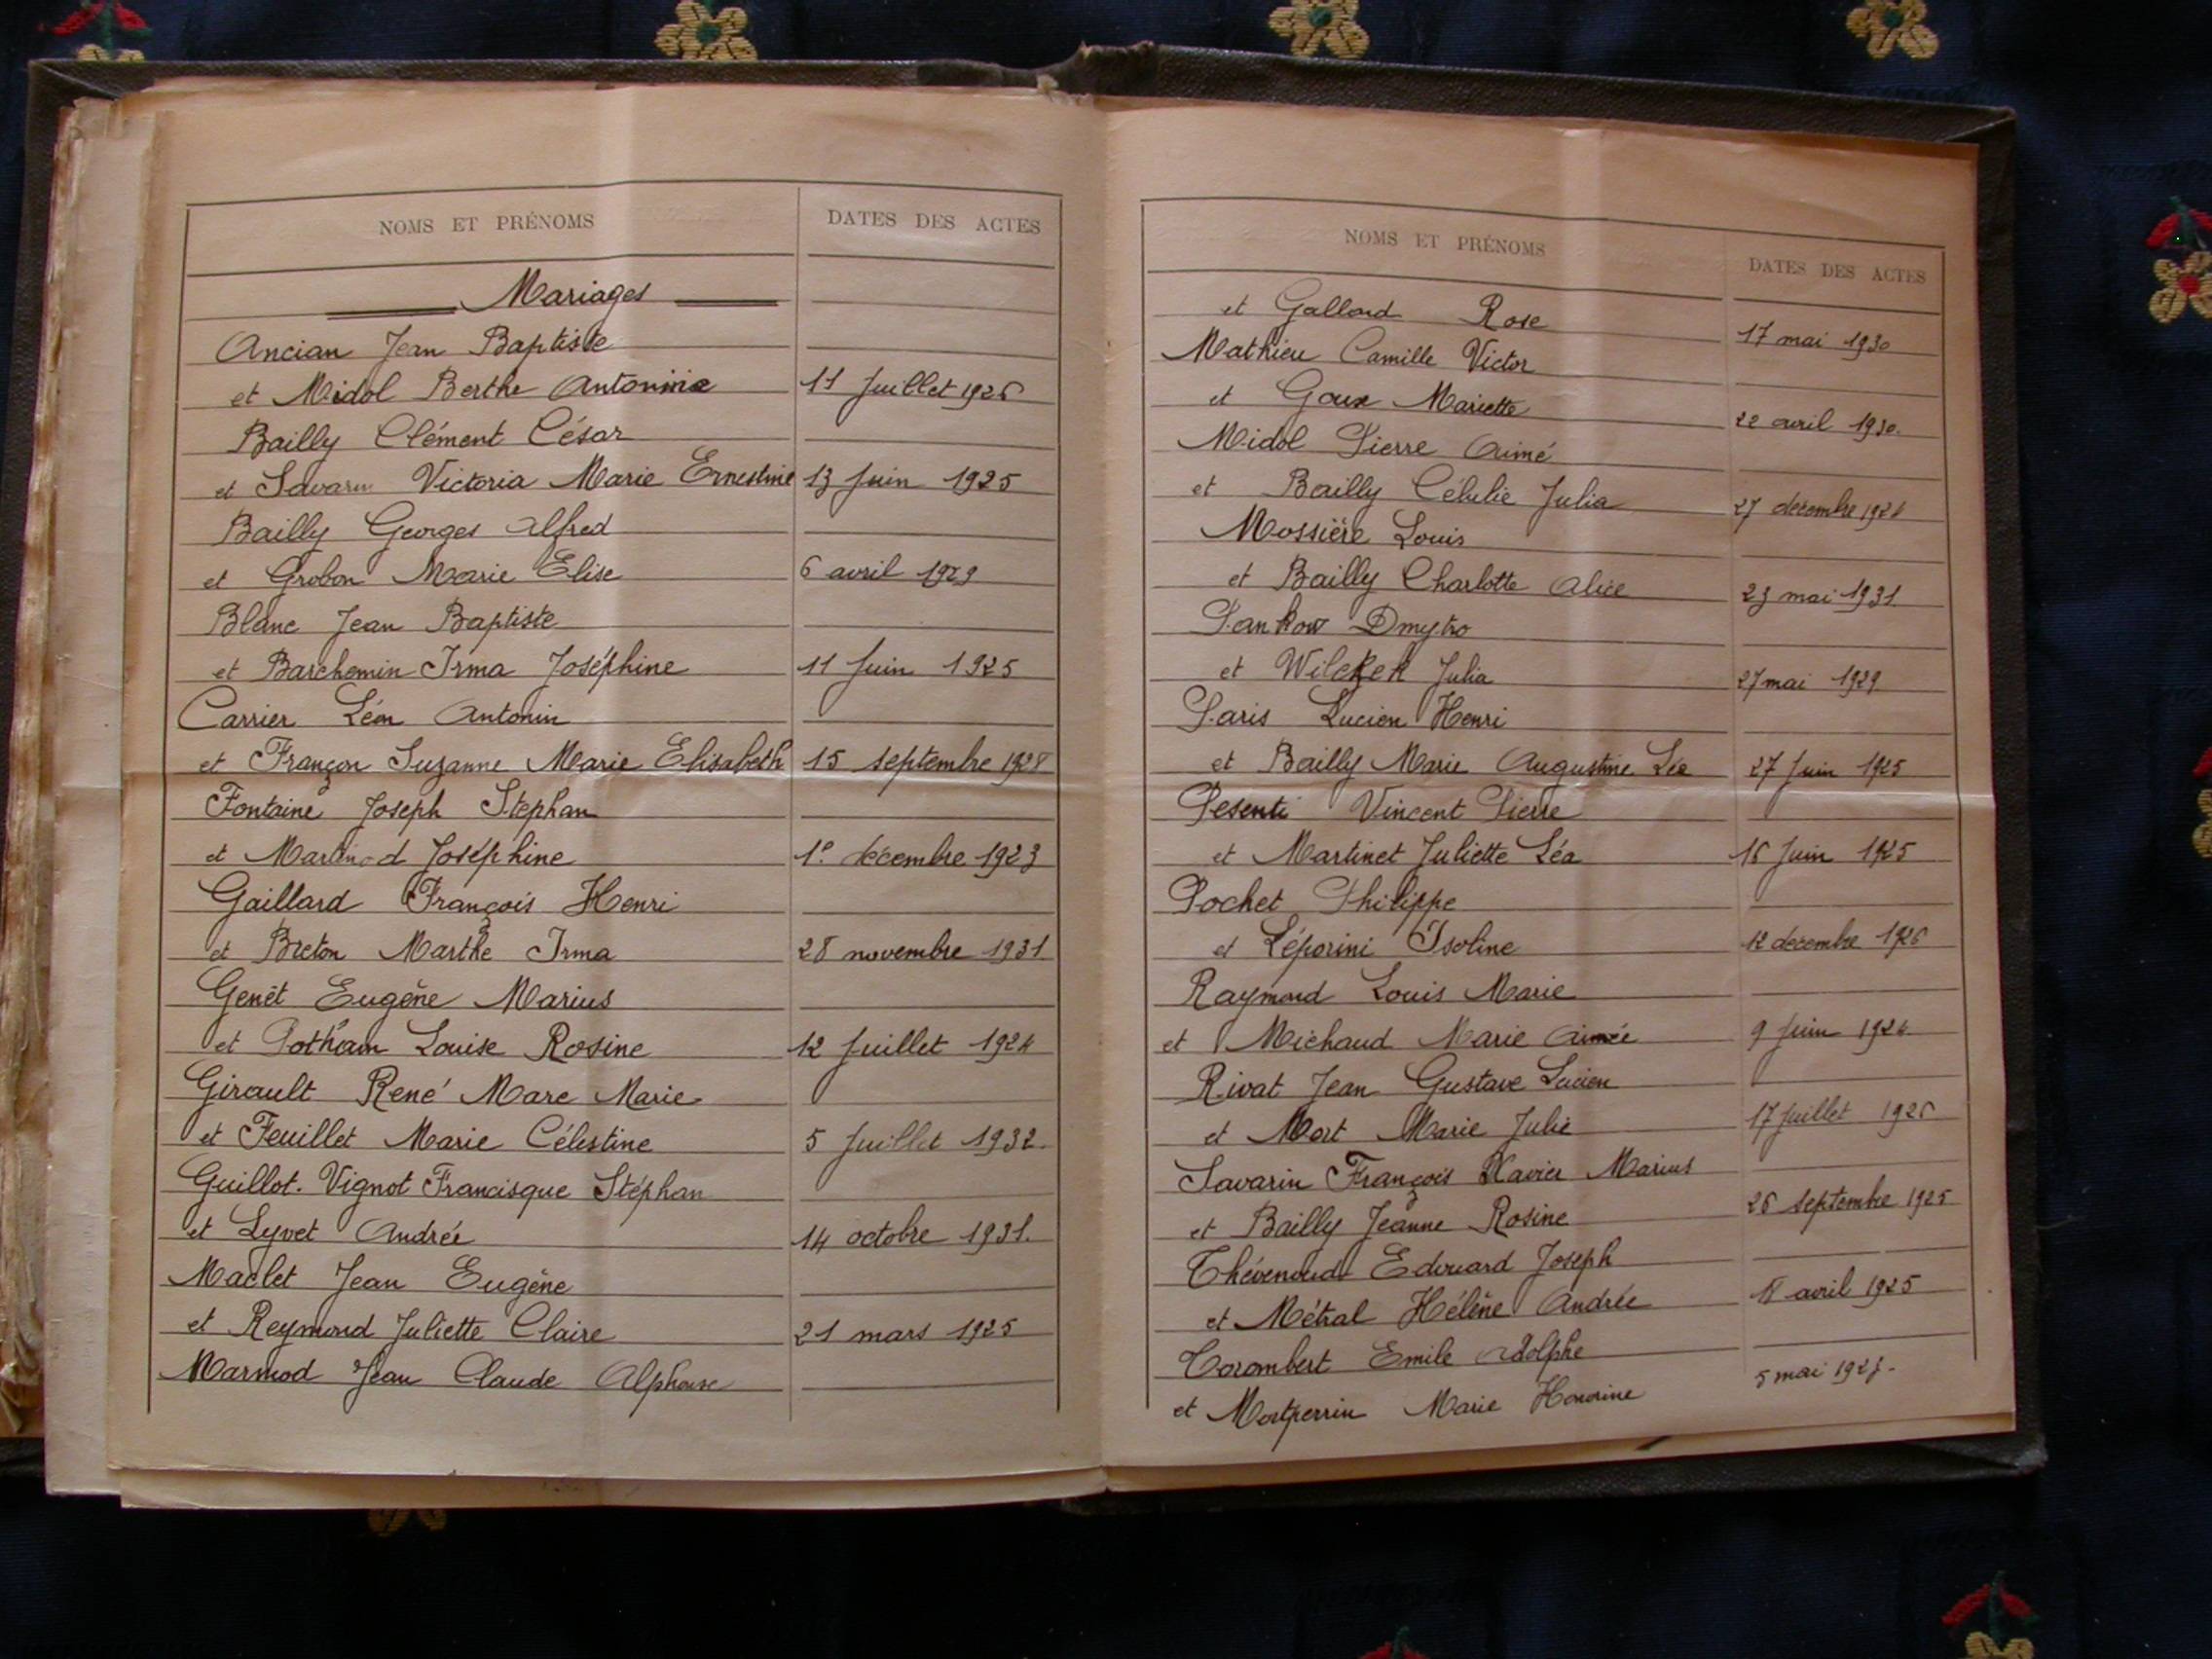 NOMS ET PRÉNOMS DATES DES ACTES
Mariages
Ancian Jean Baptiste
et Midol Berthe Antonine 11 Juillet 1926
Bailly Clément César
et Savarin Victoria Marie Ernestine 13 Juin 1925
Bailly Georges Alfred
et Grobon Marie Elise 6 avril 1929
Blanc Jean Baptiste
et Barchemin Irma Joséphine 11 Juin 1925
Carrier Léon Antonin
et Françon Suzanne Marie Elisabeth 15 septembre 1928
Fontaine Joseph Stephan
et Martinod Joséphine 1º décembre 1923
Gaillard François Henri
et Breton Marthe Irma 28 novembre 1931
Genêt Eugène Marius
et Pothain Louise Rosine 12 Juillet 1924
Girault René Marc Marie
et Feuillet Marie Célestine 5 Juillet 1932.
Guillot-Vignot Francisque Stéphan
et Lyvet Andrée 14 octobre 1931.
Maclet Jean Eugène
et Reymond Juliette Claire 21 mars 1925
Marmod Jean Claude Alphonse
NOMS ET PRÉNOMS DATES DES ACTES
et Galland Rose 17 mai 1930
Mathieu Camille Victor
et Goux Mariette 22 avril 1930.
Midol Pierre Aimé
et Bailly Julia 27 décembre
Mossière Louis
et Bailly Charlotte Alice 23 mai 1931
Pankow Dmytro
et Julia 27 mai 1929
Paris Lucien Henri
et Bailly Marie Augustine Léa 27 Juin 1925
Pesenti Vincent Pierre
et Martinet Juliette Léa 16 Juin 1925
Pochet Philippe
et Léporini Isoline 12 décembre 1926
Raymond Louis Marie
et Michaud Marie Aimée 9 Juin
Rivat Jean Gustave Lucien
et Mort Marie Julie 17 Juillet 1926
Savarin François Xavier Marius
et Bailly Jeanne Rosine 26 septembre 1925
Thévenoud Edouard Joseph
et Métral Hélène Andrée avril 1925
Torombert Emile Adolphe
et Montperrin Marie Honorine 5 mai